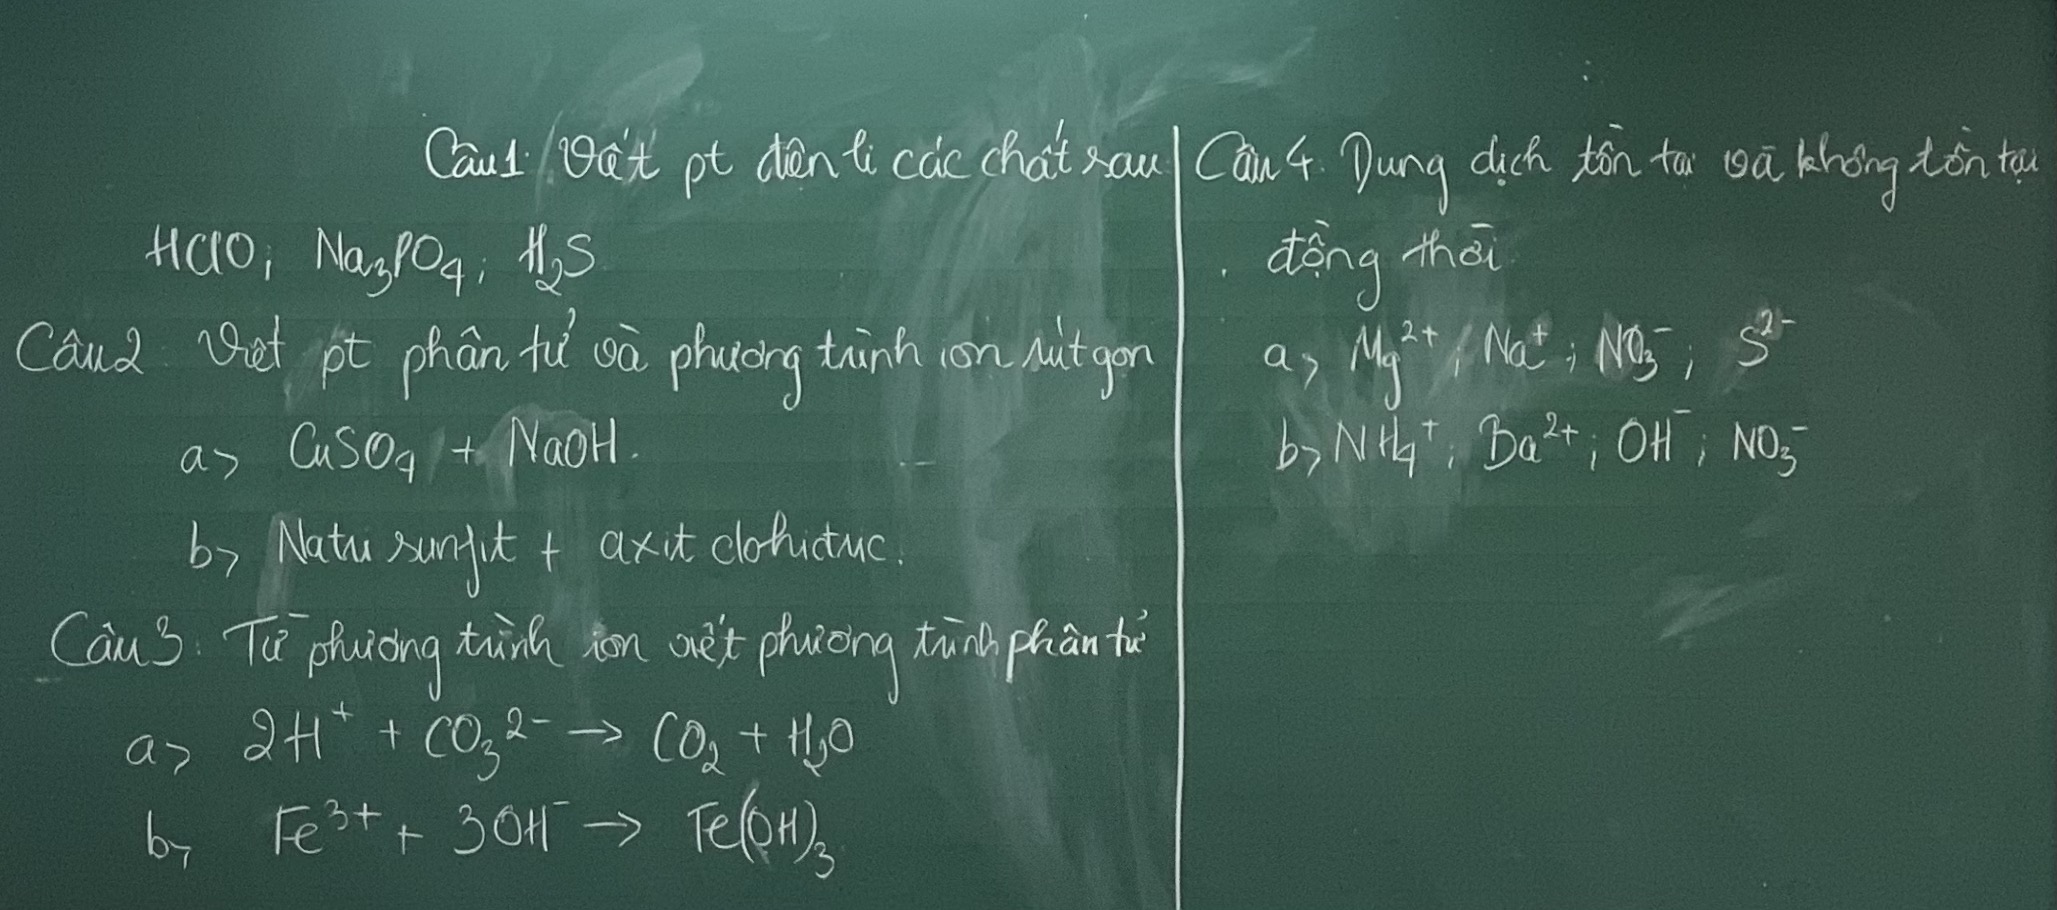 Câu 1: Viết pt điện li các chất sau
HClO; Na₃PO₄; H₂S
Câu 2 Viết pt phân tử và phương trình ion rút gọn
a> CuSO₄ + NaOH.
b> Natri sunfit + axit clohidric.
Câu 3: Từ phương trình ion viết phương trình phân tử
a> 2H⁺ + CO₃²⁻ → CO₂ + H₂O
b> Fe³⁺ + 3OH⁻ → Fe(OH)₃
Câu 4. Dung dịch tồn tại và không tồn tại
đồng thời
a> Mg²⁺; Na⁺; NO₃⁻; S²⁻
b> NH₄⁺; Ba²⁺; OH⁻; NO₃⁻